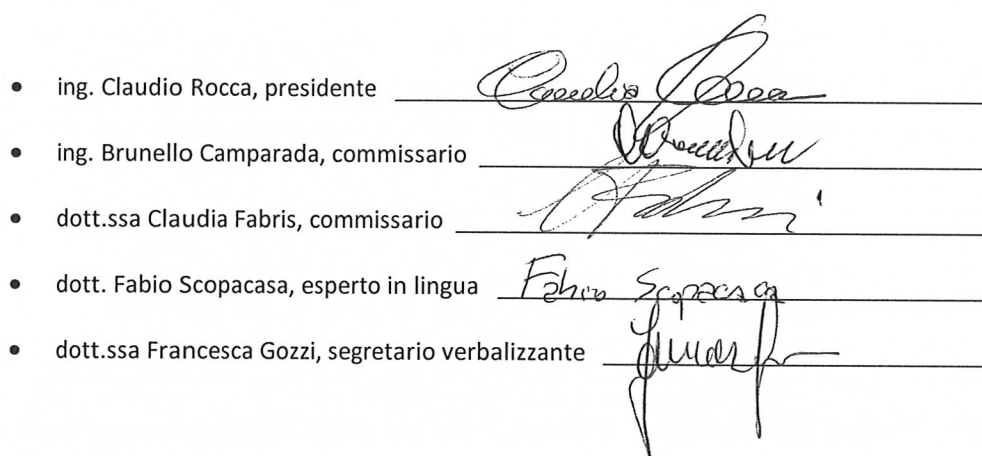 • ing. Claudio Rocca, presidente Claudio Rocca
• ing. Brunello Camparada, commissario
• dott.ssa Claudia Fabris, commissario Fabris
• dott. Fabio Scopacasa, esperto in lingua Fabio Scopacasa
• dott.ssa Francesca Gozzi, segretario verbalizzante